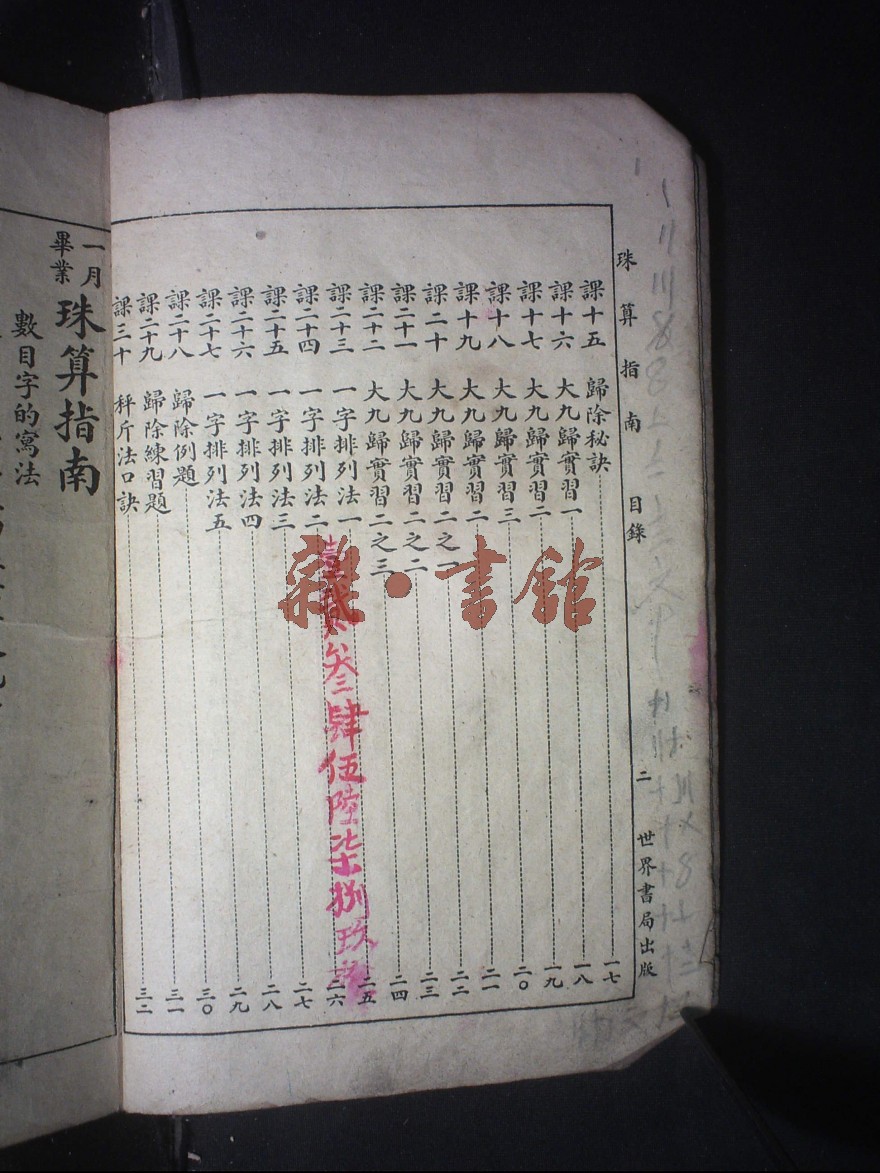 珠算指南 目錄 二 世界書局出版
課十五 歸除秘訣 一七
課十六 大九歸實習一 一八
課十七 大九歸實習二 一九
課十八 大九歸實習三 二〇
課十九 大九歸實習二 二一
課二十 大九歸實習二之一 二二
課二十一 大九歸實習二之二 二三
課二十二 大九歸實習二之三 二四
課二十三 一字排列法一 二五
課二十四 一字排列法二 二六
課二十五 一字排列法三 二七
課二十六 一字排列法四 二八
課二十七 一字排列法五 二九
課二十八 歸除例題 三〇
課二十九 歸除練習題 三一
課三十 秤斤法口訣 三二
壹貳叁肆伍陸柒捌玖
雜·書館
一月畢業 珠算指南
數目字的寫法